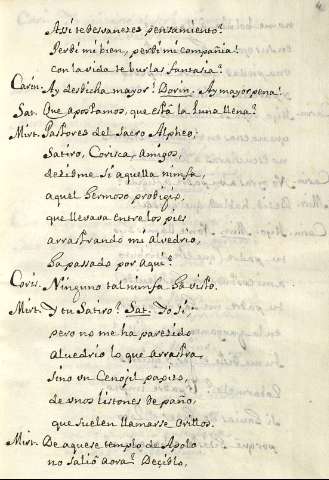 Assi te desvaneces pensamiento?
Perdi mi bien, perdi mi compañia!
con la vida te burlas fantasia?
Carin. Ay desdicha mayor! Dorin. Ay mayor pena!
Sat. Que apostamos, que està la Luna llena?
Mirt. Pastores del Sacro Alpheo,
Satiro, Corisca, Amigos,
decidme si aquella ninfa,
aquel hermoso prodigio,
que llevava entre los pies
arrastrando mi alvedrio,
ha passado por aqui?
Coris. Ninguno tal ninfa ha visto.
Mirt. Y tu Satiro? Sat. Yo si;
pero no me ha parecido
alvedrio lo que arrastra,
sino un Cenojil pagizo,
de unos listones de paño,
que suelen llamarse orillos.
Mirt. De aquese templo de Apolo
no saliò aora? Decidlo,